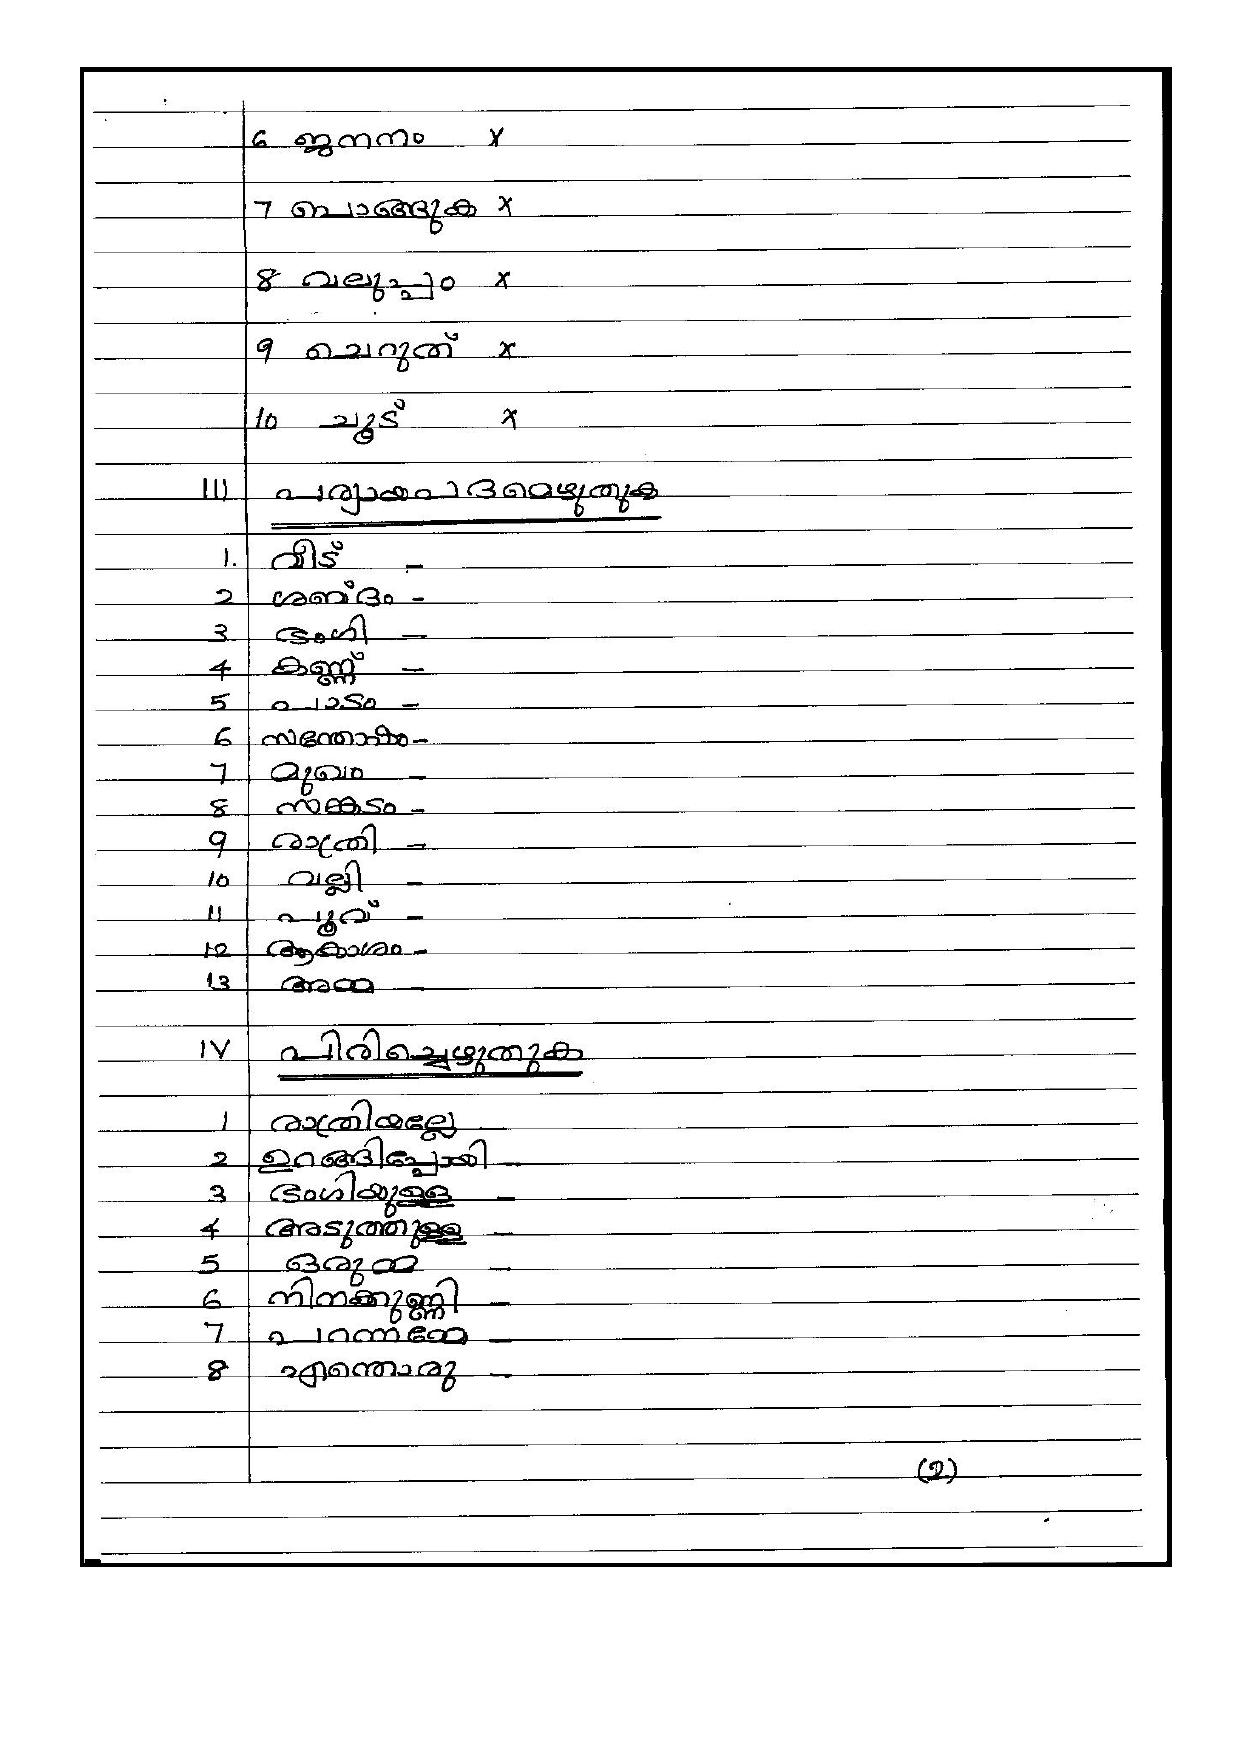 6 ജനനം x
7 പൊങ്ങുക x
8 വലുപ്പം x
9 ചെറുത് x
10 ചൂട് x
III പര്യായപദമെഴുതുക
1. വീട് -
2 ശബ്ദം -
3 ഭംഗി -
4 കണ്ണ് -
5 പാടം -
6 സന്തോഷം -
7 മുഖം -
8 സങ്കടം -
9 രാത്രി -
10 വല്ലി -
11 പൂവ് -
12 ആകാശം -
13 അമ്മ -
IV പിരിച്ചെഴുതുക
1 രാത്രിയല്ലേ -
2 ഉറങ്ങിപ്പോയി -
3 ഭംഗിയുള്ള -
4 അടുത്തുള്ള -
5 ഒരുമ്മ -
6 നിനക്കുണ്ണി -
7 പറന്നമ്മേ -
8 എന്തൊരു -
(2)